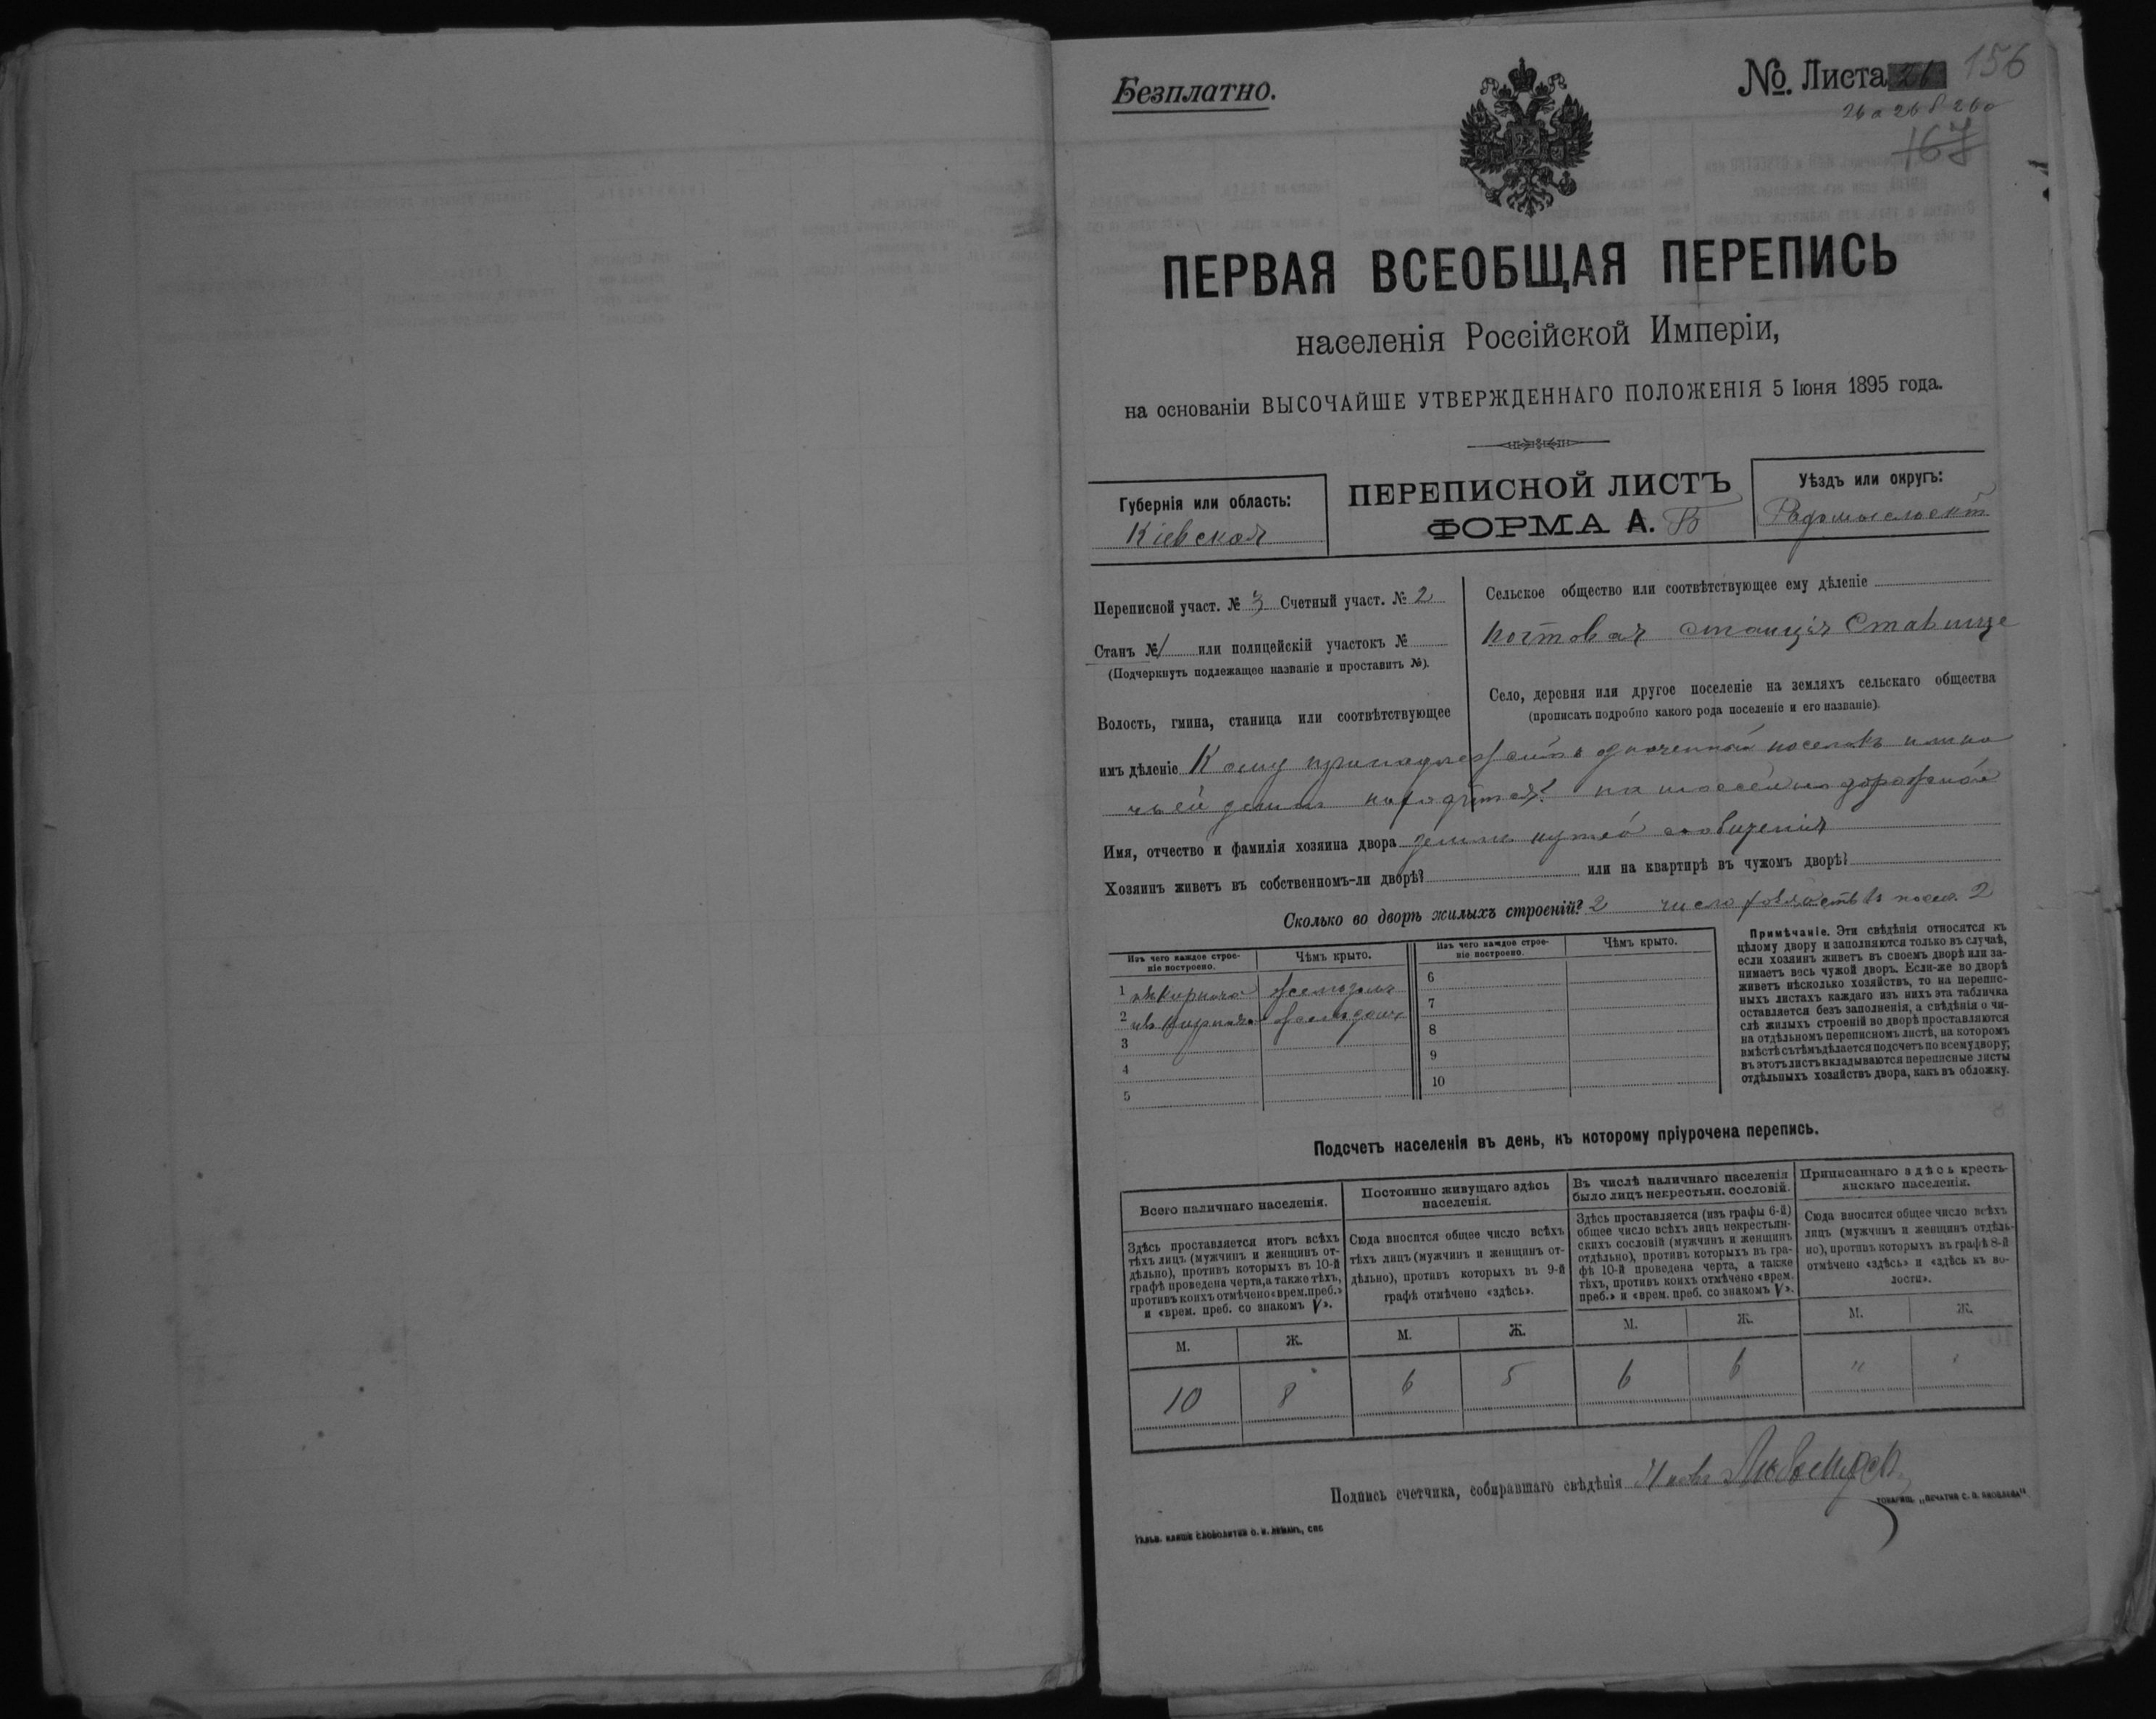 Безплатно.
№. Листа 26 156
26а 26б 26в
167
ПЕРВАЯ ВСЕОБЩАЯ ПЕРЕПИСЬ
населенія Россійской Имперіи,
на основаніи ВЫСОЧАЙШЕ УТВЕРЖДЕННАГО ПОЛОЖЕНІЯ 5 Іюня 1895 года.
Губернія или область:
Кіевская
ПЕРЕПИСНОЙ ЛИСТЪ
ФОРМА А. Б
Уѣздъ или округъ:
Радомысльскій
Переписной участ. № 3 Счетный участ. № 2
Станъ № 1 или полицейскій участокъ №
(Подчеркнуть подлежащее названіе и проставить №).
Волость, гмина, станица или соотвѣтствующее
Сельское общество или соотвѣтствующее ему дѣленіе
почтовая станція Ставище
Село, деревня или другое поселеніе на земляхъ сельскаго общества
(прописать подробно какого рода поселеніе и его названіе).
имъ дѣленіе Кому принадлежитъ означенный поселокъ или на
чьей земли находится? на шоссейно дорожной
Имя, отчество и фамилія хозяина двора земли путей сообщенія
Хозяинъ живетъ въ собственномъ-ли дворѣ? или на квартирѣ въ чужомъ дворѣ?
Сколько во дворѣ жилыхъ строеній? 2 число хозяйствъ въ посел. 2
Изъ чего каждое строе-
ніе построено.
Чѣмъ крыто.
1 изъ кирпича желѣзомъ
2 изъ кирпича желѣзомъ
3
4
5
Изъ чего каждое строе-
ніе построено.
Чѣмъ крыто.
6
7
8
9
10
Примѣчаніе. Эти свѣдѣнія относятся къ
цѣлому двору и заполняются только въ случаѣ,
если хозяинъ живетъ въ своемъ дворѣ или за-
нимаетъ весь чужой дворъ. Если-же во дворѣ
живетъ нѣсколько хозяйствъ, то на перепис-
ныхъ листахъ каждаго изъ нихъ эта табличка
оставляется безъ заполненія, а свѣдѣнія о чи-
слѣ жилыхъ строеній во дворѣ проставляются
на отдѣльномъ переписномъ листѣ, на которомъ
вмѣстѣ съ тѣмъ дѣлается подсчетъ по всему двору;
въ этотъ листъ вкладываются переписные листы
отдѣльныхъ хозяйствъ двора, какъ въ обложку.
Подсчетъ населенія въ день, къ которому пріурочена перепись.
Всего наличнаго населенія.
Здѣсь проставляется итогъ всѣхъ
тѣхъ лицъ (мужчинъ и женщинъ от-
дѣльно), противъ которыхъ въ 10-й
графѣ проведена черта, а также тѣхъ,
противъ коихъ отмѣчено «врем. преб.»
и «врем. преб. со знакомъ V».
М. Ж.
10 8
Постоянно живущаго здѣсь
населенія.
Сюда вносится общее число всѣхъ
тѣхъ лицъ (мужчинъ и женщинъ от-
дѣльно), противъ которыхъ въ 9-й
графѣ отмѣчено «здѣсь».
М. Ж.
6 5
Въ числѣ наличнаго населенія
было лицъ некрестьян. сословій.
Здѣсь проставляется (изъ графы 6-й)
общее число всѣхъ лицъ некрестьян-
скихъ сословій (мужчинъ и женщинъ
отдѣльно), противъ которыхъ въ гра-
фѣ 10-й проведена черта, а также
тѣхъ, противъ коихъ отмѣчено «врем.
преб.» и «врем. преб. со знакомъ V».
М. Ж.
6 6
Приписаннаго здѣсь кресть-
янскаго населенія.
Сюда вносится общее число всѣхъ
лицъ (мужчинъ и женщинъ отдѣль-
но), противъ которыхъ въ графѣ 8-й
отмѣчено «здѣсь» и «здѣсь къ во-
лости».
М. Ж.
"
Подпись счетчика, собиравшаго свѣдѣнія